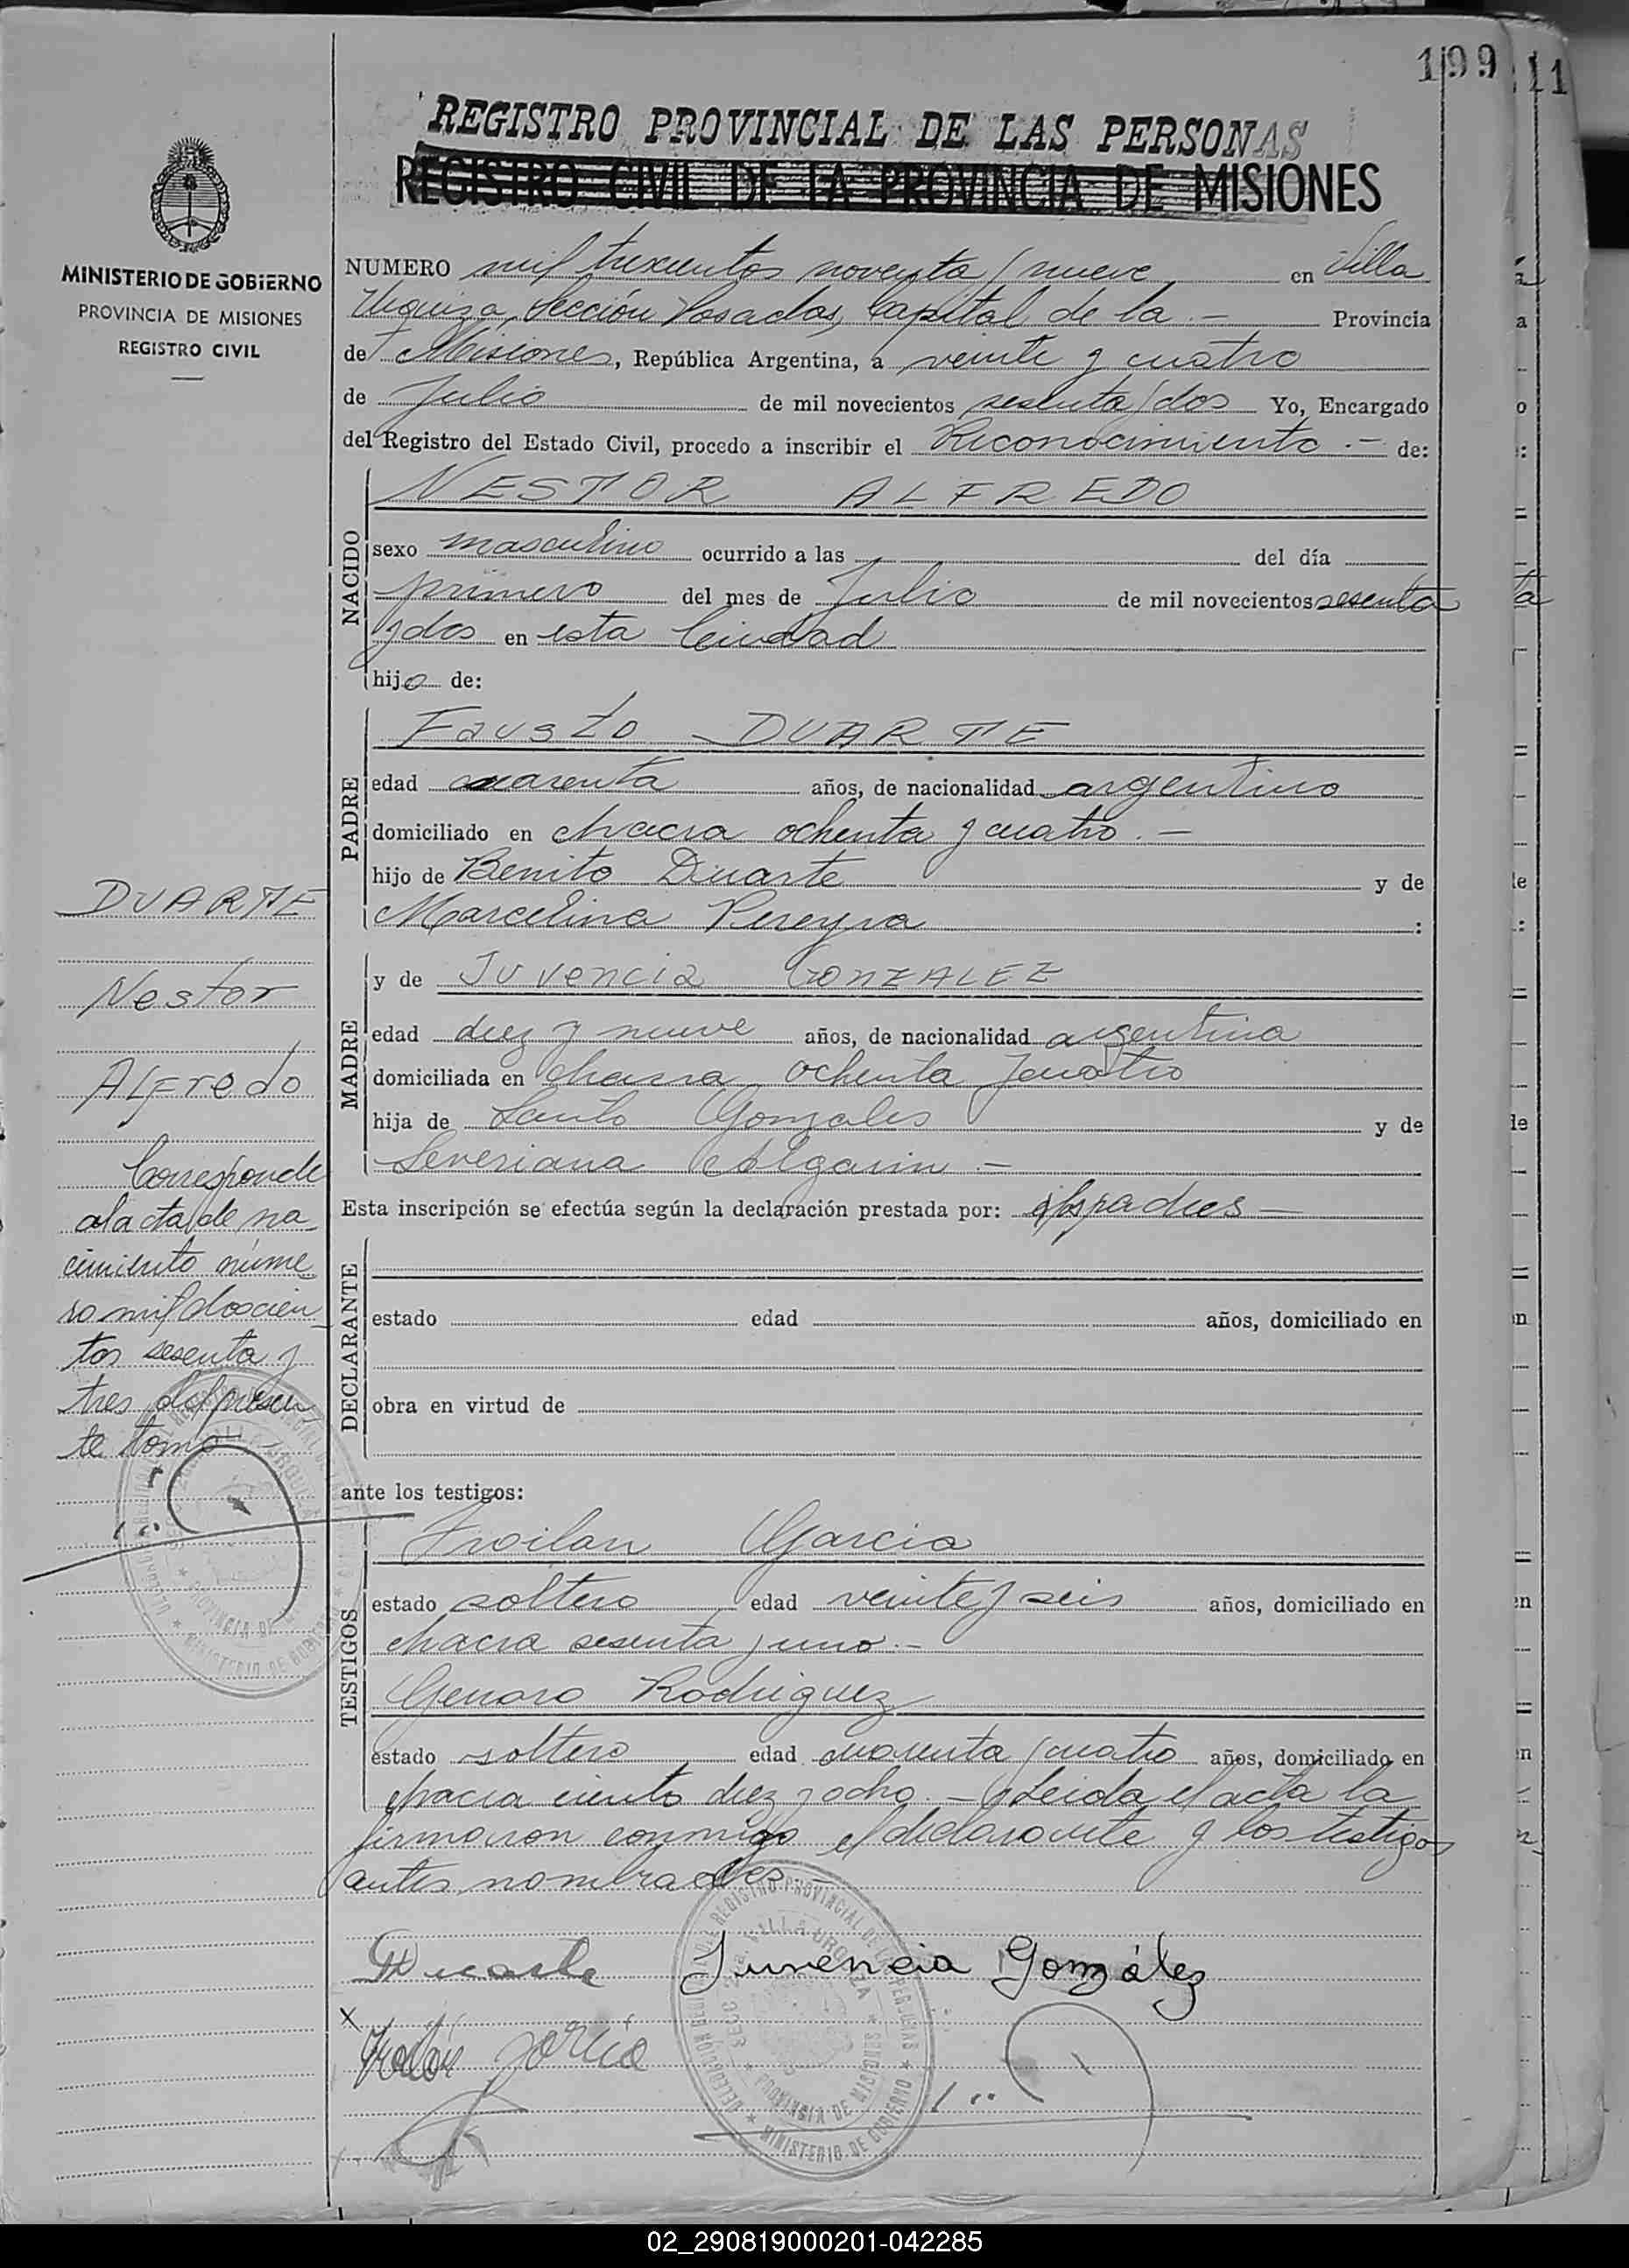 199
11
REGISTRO PROVINCIAL DE LAS PERSONAS
REGISTRO CIVIL DE LA PROVINCIA DE MISIONES
MINISTERIO DE GOBIERNO
PROVINCIA DE MISIONES
REGISTRO CIVIL
NUMERO mil trescientos noventa y nueve en Villa
Urquiza, Sección Posadas, Capital de la .- Provincia
de Misiones, República Argentina, a veinte y cuatro
de Julio de mil novecientos sesenta y dos Yo, Encargado
del Registro del Estado Civil, procedo a inscribir el Reconocimiento .- de:
NACIDO
NESTOR ALFREDO
sexo masculino ocurrido a las del día
primero del mes de Julio de mil novecientos sesenta
y dos en esta Ciudad
hijo de:
PADRE
Fausto DUARTE
edad cuarenta años, de nacionalidad argentino
domiciliado en chacra ochenta y cuatro .-
hijo de Benito Duarte y de
Marcelina Pereyra :
MADRE
y de Juvencia GONZALEZ
edad diez y nueve años, de nacionalidad argentina
domiciliada en chacra ochenta y cuatro
hija de Santo Gonzales y de
Severiana Algarin -
Esta inscripción se efectúa según la declaración prestada por: los padres -
DECLARANTE
estado edad años, domiciliado en
obra en virtud de
ante los testigos:
TESTIGOS
Froilan Garcia
estado soltero edad veinte y seis años, domiciliado en
chacra sesenta y uno .-
Genaro Rodriguez
estado soltero edad cuarenta y cuatro años, domiciliado en
chacra ciento diez y ocho .- Leida el acta la
firmaron conmigo el declarante y los testigos
antes nombrados -
DUARTE
Nestor
Alfredo
Corresponde
al acta de na
cimiento núme
ro mil doscien
tos sesenta y
tres del presen
te tomo -
Duarte Juvencia González
x
Froilan Garcia
REGISTRO PROVINCIAL DE LAS PERSONAS
VILLA URQUIZA
PROVINCIA DE MISIONES
MINISTERIO DE GOBIERNO
02_290819000201-042285